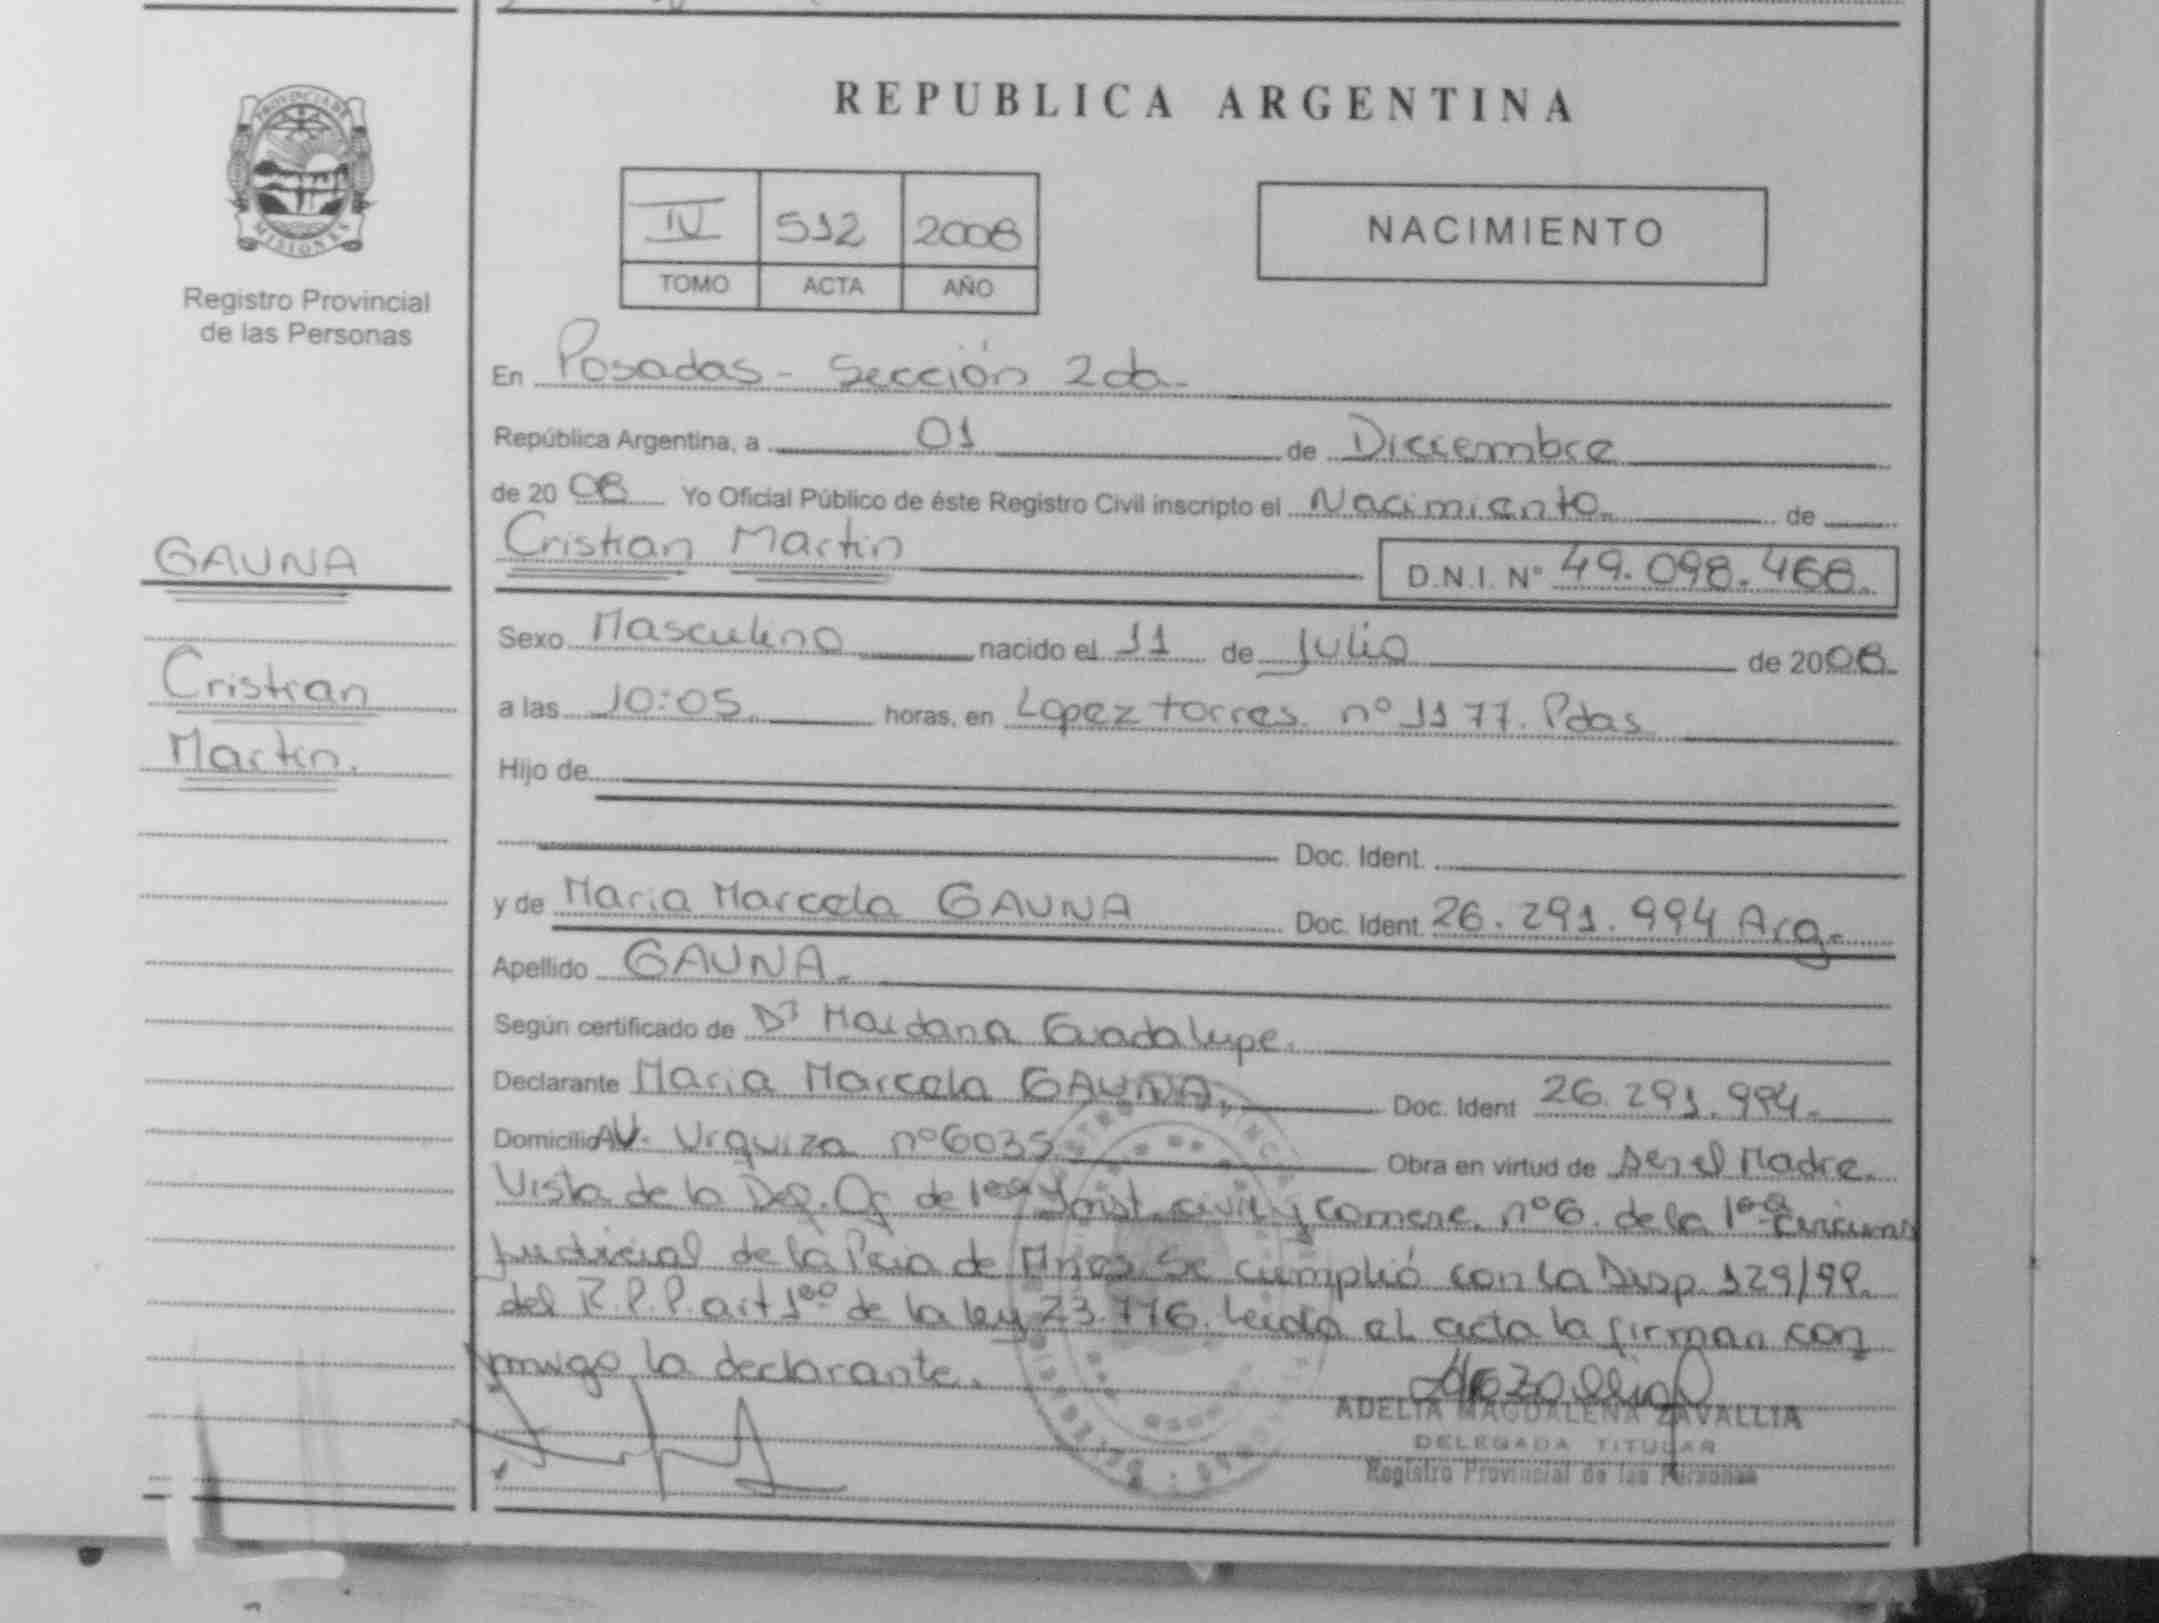 PROVINCIA DE
MISIONES
Registro Provincial
de las Personas
GAUNA
Cristian
Martin.
REPUBLICA ARGENTINA
IV 512 2008
TOMO ACTA AÑO
NACIMIENTO
En Posadas - Sección 2da -
República Argentina, a 01 de Diciembre
de 20 08 Yo Oficial Público de éste Registro Civil inscripto el Nacimiento de
Cristian Martin D.N.I. Nº 49.098.468.
Sexo Masculino nacido el 11 de Julio de 2008.
a las 10:05 horas, en Lopez torres nº 1177. Pdas
Hijo de
Doc. Ident.
y de Maria Marcela GAUNA Doc. Ident. 26.291.994 Arg.
Apellido GAUNA.
Según certificado de Guadalupe.
Declarante Maria Marcela GAUNA. Doc. Ident 26.291.994.
Domicilio AV. Urquiza nº 6035 Obra en virtud de Ser el Madre.
Vista de la de 1era Inst. civil y comerc. nº 6. de la 1era
Judicial de la Pcia de Mnes. Se cumplió con la Disp. 129/99.
del R.P.P. art 1ero de la ley 23.776. leida el acta la firman con
migo la declarante.
ADELIA MAGDALENA ZAVALLIA
DELEGADA TITULAR
Registro Provincial de las Personas